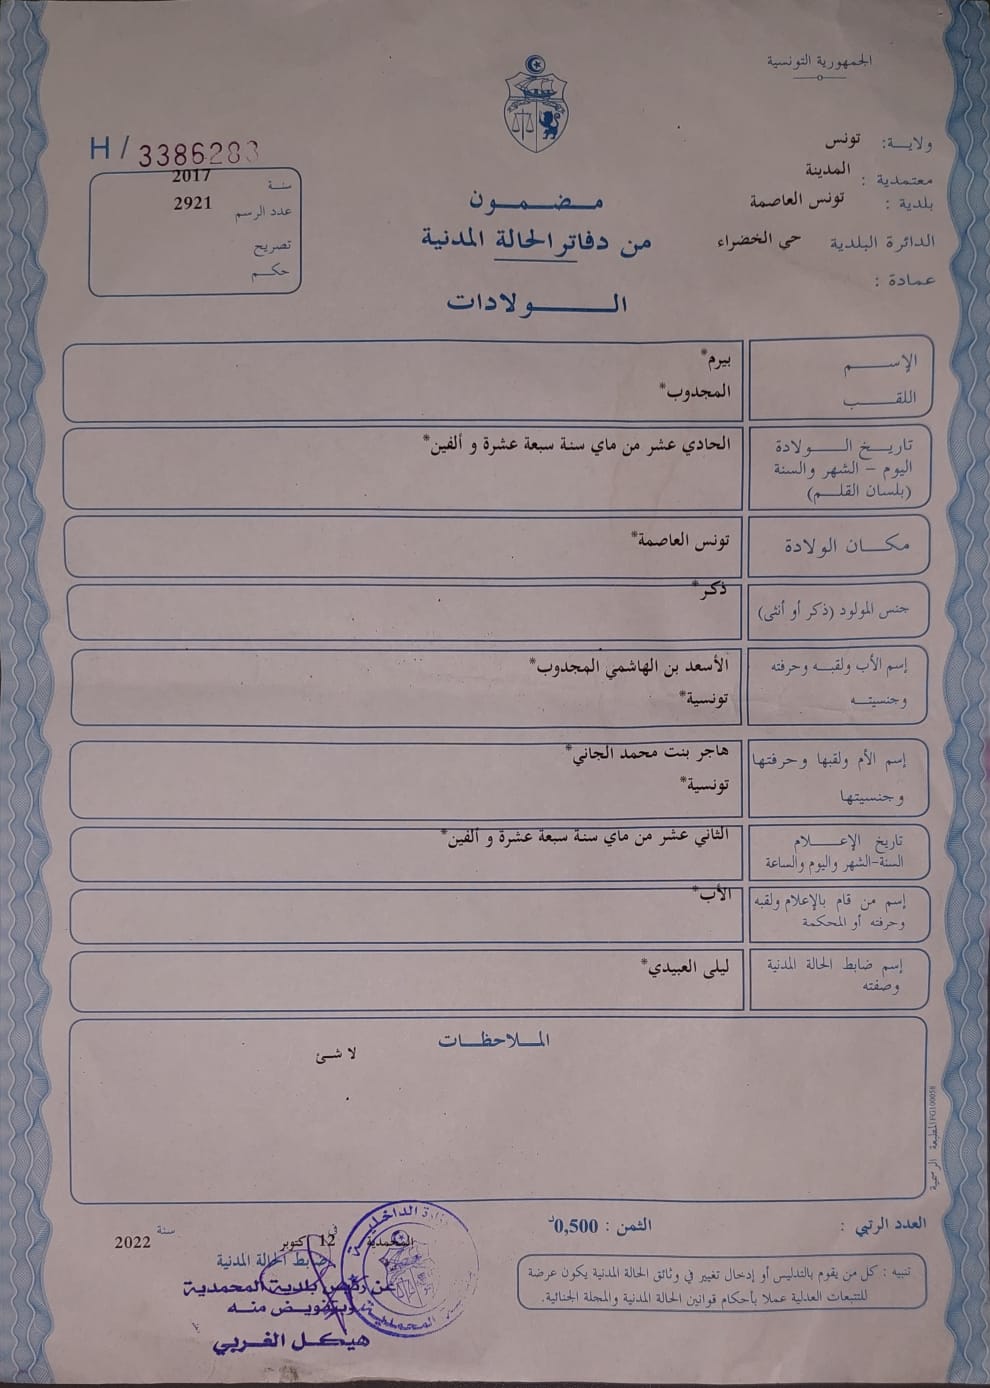 الجمهورية التونسية
ولايـــة: تونس
معتمدية : المدينة
بلدية : تونس العاصمة
الدائرة البلدية حي الخضراء
عمادة :
H / 3386283
سنة 2017
عدد الرسم 2921
تصريح
حكم
مضمون
من دفاتر الحالة المدنية
الولادات
الإسم بيرم*
اللقب المجدوب*
تاريخ الولادة الحادي عشر من ماي سنة سبعة عشرة و ألفين*
اليوم - الشهر والسنة
(بلسان القلم)
مكان الولادة تونس العاصمة*
جنس المولود (ذكر أو أنثى) ذكر*
إسم الأب ولقبه وحرفته الأسعد بن الهاشمي المجدوب*
وجنسيته تونسية*
إسم الأم ولقبها وحرفتها هاجر بنت محمد الجاني*
وجنسيتها تونسية*
تاريخ الإعلام الثاني عشر من ماي سنة سبعة عشرة و ألفين*
السنة-الشهر واليوم والساعة
إسم من قام بالإعلام ولقبه الأب*
وحرفته أو المحكمة
إسم ضابط الحالة المدنية ليلى العبيدي*
وصفته
الملاحظات
لا شئ
المطبعة الرسمية
العدد الرتبي :
الثمن : 0,500د
تنبيه : كل من يقوم بالتدليس أو إدخال تغيير في وثائق الحالة المدنية يكون عرضة
للتتبعات العدلية عملا بأحكام قوانين الحالة المدنية والمجلة الجنائية.
المحمدية في 12 كتوبر سنة 2022
ضابط الحالة المدنية
عن رئيس بلدية المحمدية
وبتفويض منه
هيكل الغربي